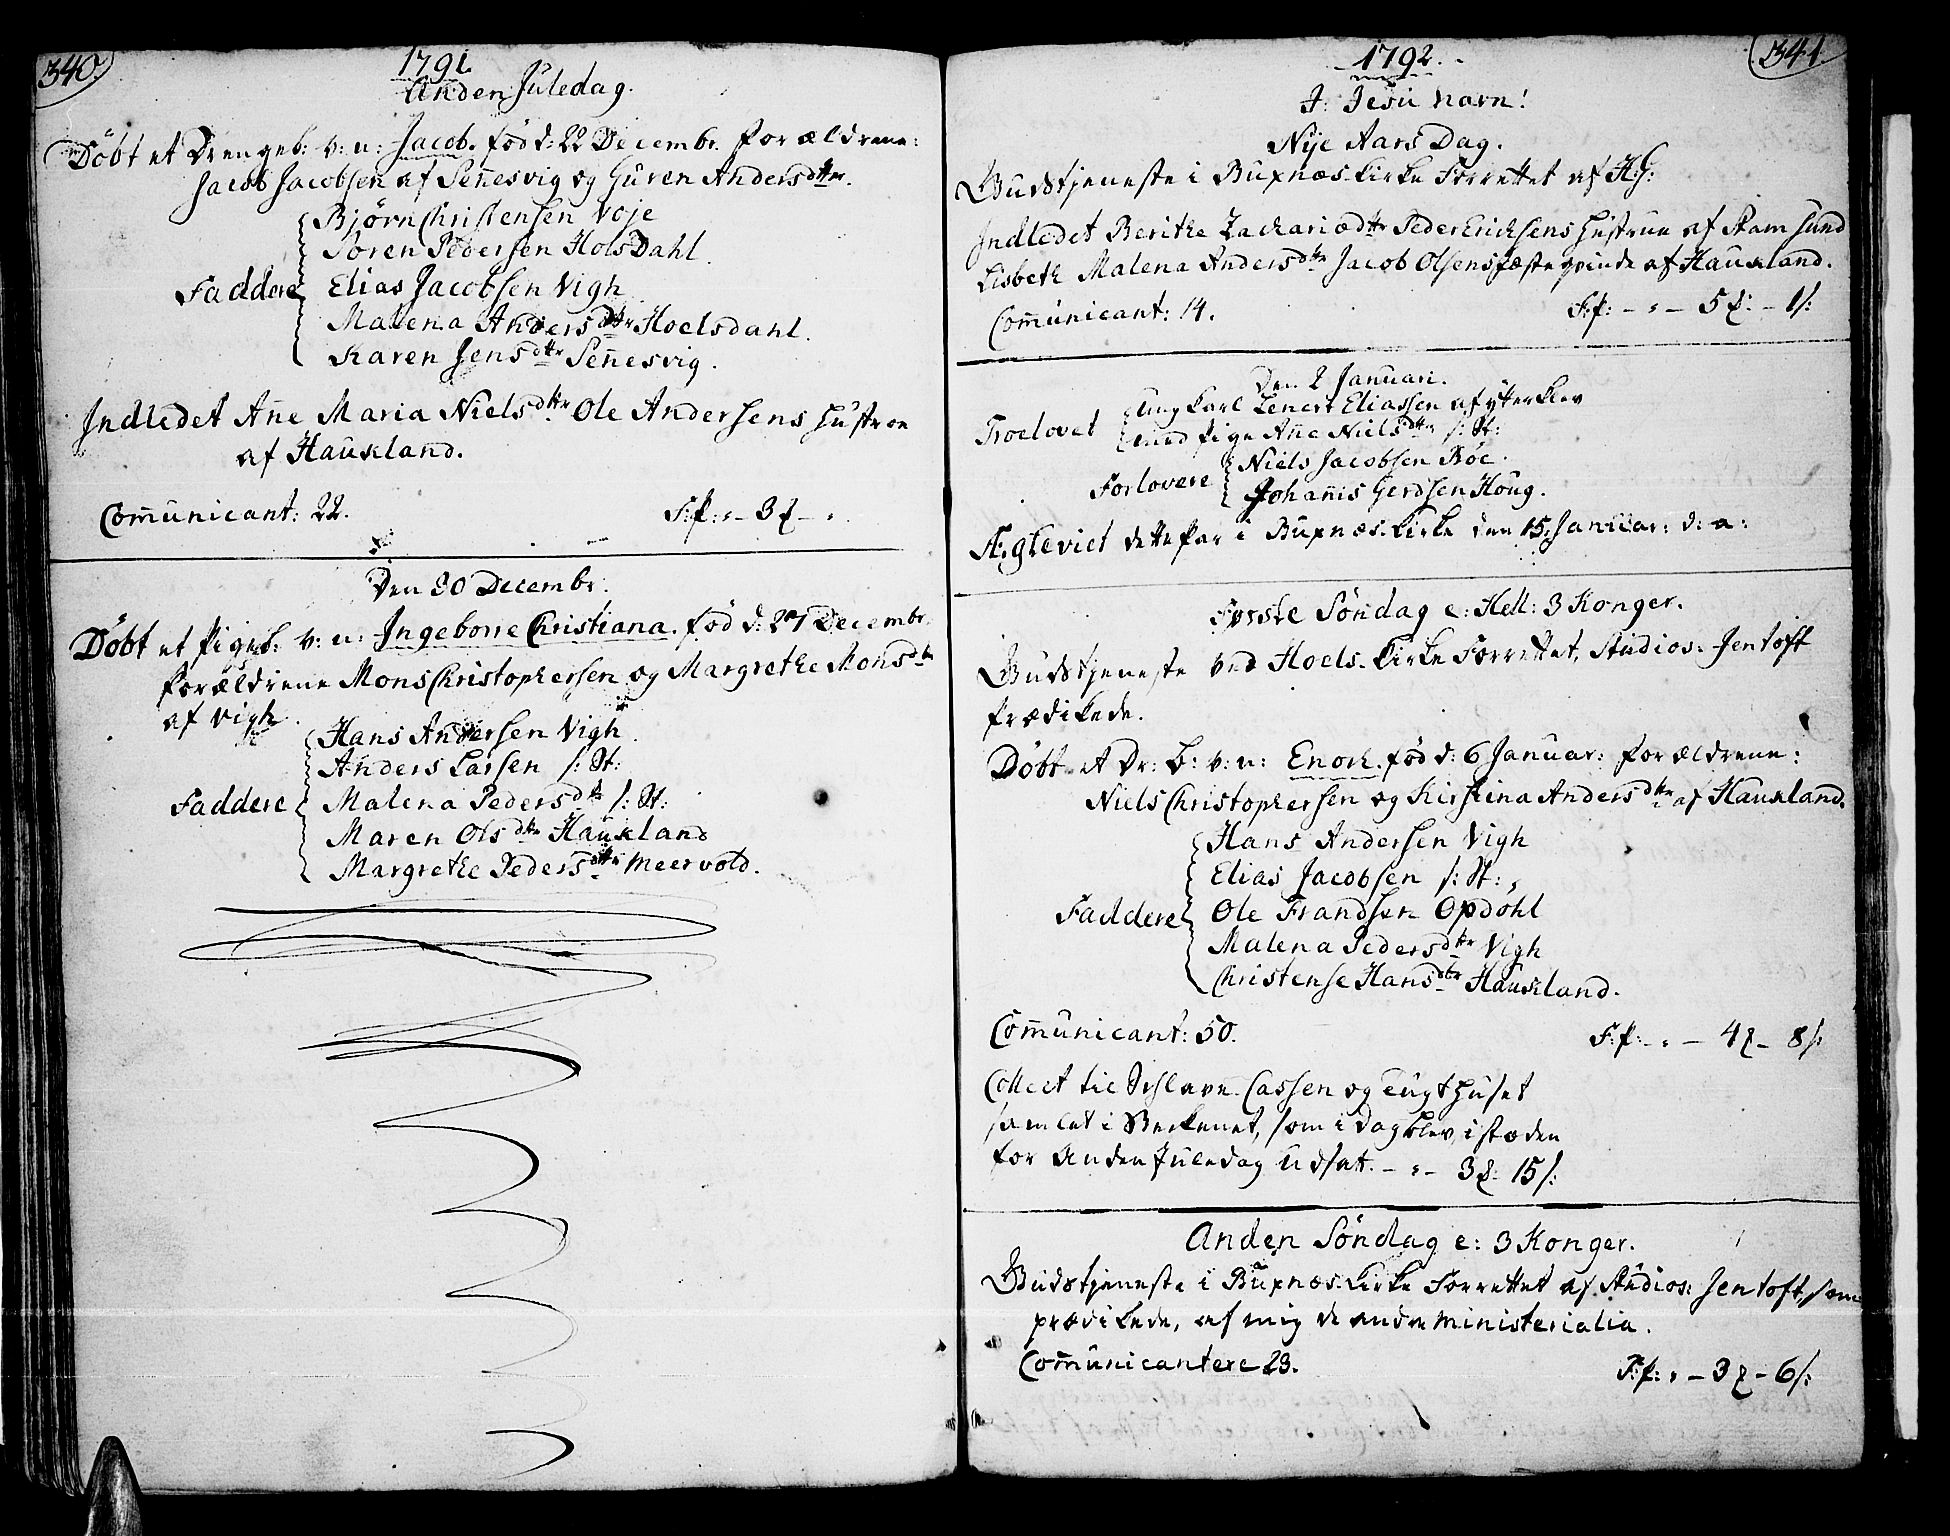 340.
1791.
Anden Juledag.
Döbt et Drengeb: v: n: Jacob. föd d: 22 Decembr. Forældrene:
Jacob Jacobsen af Sen̄esvig og Guren Andersdttr.
Bjørn Christensen Voje
Sören Pedersen Holsdahl.
Faddere Elias Jacobsen Vigh
Malena Andersdttr Hoelsdahl.
Karen Jensdttr Sen̄esvig.
Indledet An̄e Maria Nielsdttr Ole Andersens Hustroe
af Haukland.
Com̄unicant: 22. F:f: „ – 3 ʒ – „.
Den 30 Decembr.
Döbt et Pigeb: v: n: Ingeborre Christiana. föd d: 27 Decembr.
Forældrene Mons Christophersen og Margrethe Monsdtr
af Vigh.
Hans Andersen Vigh.
Anders Larsen /: St:
Faddere Malena Pedersdtr /: St:
Maren Olsdttr Haukland
Margrethe Pedersdttr Meervold.
341.
1792.
I: Jesu Navn!
Nye Aars Dag.
Gudstjeneste i Buxnæs-Kirke Forrettet af H:G:
Indledet Berithe Zachariædttr Peder Ericksens Hustrue af Stamsund
Lisbeth Malena Andersdtr Jacob Olsens fæste qvinde af Haukland.
Com̄unicant: 14. F:f: – „ – 5 ʒ: – 1 /:
Den 2 Januari.
Troelovet ung Karl Lenert Eliassen af ytterklev
med Pige An̄e Nielsdttr /: St:
Forlovere Niels Jacobsen Böe.
Johan̄is Gerdsen Houg.
Ægteviet dette Par i Buxnæs-Kirke den 15 Januar: d: a:
Første Söndag e: Hell: 3 Konger.
Gudstjeneste ved Hoels-Kirke Forrettet, Studios: Jentoft
prædikede.
Döbt et Dr: b: v: n: Enoch. föd d: 6 Januar: Forældrene:
Niels Christophersen og Kirstina Andersdttr af Haukland.
Hans Andersen Vigh
Elias Jacobsen /: St: „
Faddere Ole Frandsen Opdöhl
Malena Pedersdttr Vigh
Christense Hansdtr Haukland.
Com̄unicant: 50. F:f: – „ – 4 ʒ – 8 /:
Collect til Schlave-Cassen og Tugthuset
samlet i Beckenet, som i dag blev, i stæden
for Anden Juledag udsat. – „ – 3 ʒ: 15 /:
Anden Söndag e: 3 Konger.
Gudstjeneste i Buxnæs-Kirke Forrettet af Studios: Jentoft, som
prædikede, af mig de andre ministerialia.
Com̄unicantere 23. F:f: „ – 3 ʒ – 6 /: